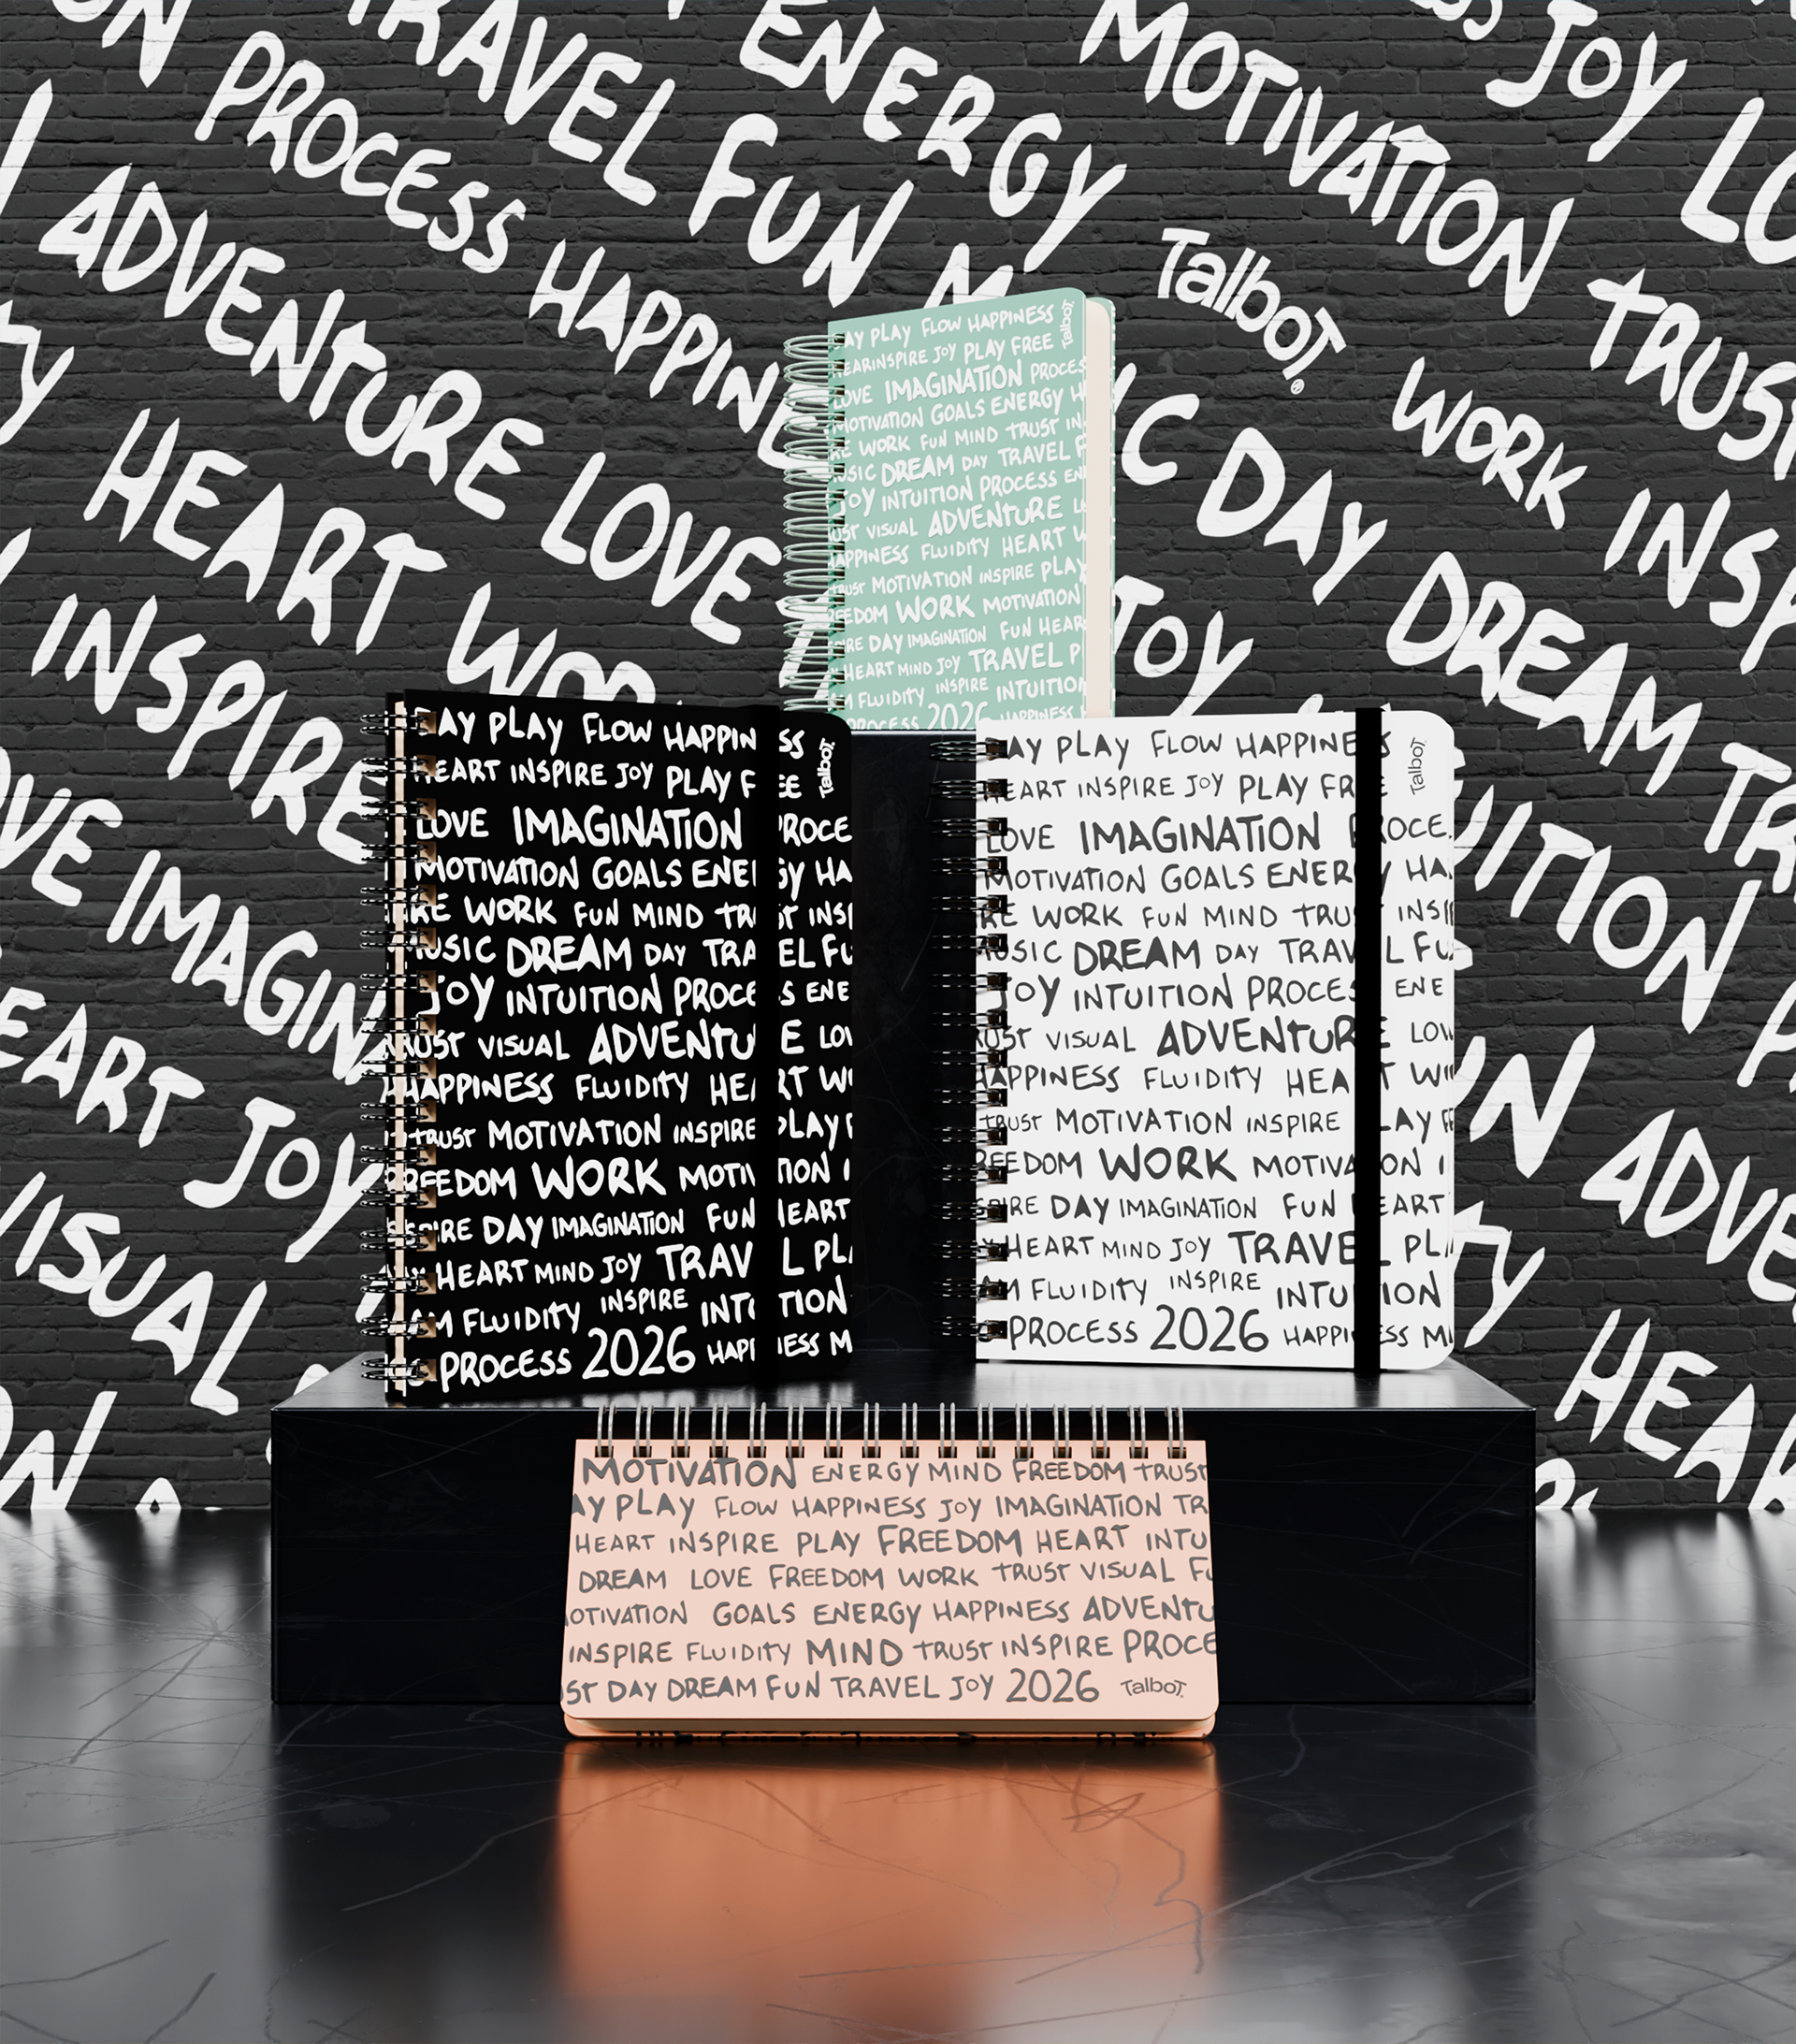 ON PROCESS HAPPINE
TRAVEL FUN M IC DAY DREAM TR
ENERGY
MOTIVATION TRUS
JOY LO
TalboT®
WORK INSP
ADVENTURE LOVE
HEART WOR
INSPIRE
JOY
UITION P
VE IMAGIN
EART JOY
VISUAL
UN ADVE
HEAR
AY PLAY FLOW HAPPINESS
TalboT
HEARINSPIRE JOY PLAY FREE
LOVE IMAGINATION PROCES
MOTIVATION GOALS ENERGY H
RE WORK FUN MIND TRUST IN
USIC DREAM DAY TRAVEL F
JOY INTUITION PROCESS EN
UST VISUAL ADVENTURE L
APPINESS FLUIDITY HEART W
TRUST MOTIVATION INSPIRE PLAY
EEDOM WORK MOTIVATION
IRE DAY IMAGINATION FUN HEAR
HEART MIND JOY TRAVEL P
M FLUIDITY INSPIRE INTUITION
PROCESS 2026 HAPPINESS
AY PLAY FLOW HAPPIN SS
TalboT
HEART INSPIRE JOY PLAY F EE
LOVE IMAGINATION PROCE
MOTIVATION GOALS ENE GY HA
RE WORK FUN MIND TRU ST INSP
USIC DREAM DAY TRA EL FU
JOY INTUITION PROCE S ENE
RUST VISUAL ADVENTU E LOV
HAPPINESS FLUIDITY HEA RT WO
TRUST MOTIVATION INSPIRE PLAY F
REEDOM WORK MOTIV TION I
PIRE DAY IMAGINATION FUN HEART
HEART MIND JOY TRAV L PLA
AM FLUIDITY INSPIRE INTU TION
PROCESS 2026 HAPP NESS M
AY PLAY FLOW HAPPINE S
TalboT
HEART INSPIRE JOY PLAY FR E
LOVE IMAGINATION PROCE
MOTIVATION GOALS ENER Y HA
RE WORK FUN MIND TRUS INSP
USIC DREAM DAY TRAV L FU
JOY INTUITION PROCES ENE
RUST VISUAL ADVENTUR E LOV
HAPPINESS FLUIDITY HEA T WO
TRUST MOTIVATION INSPIRE LAY F
REEDOM WORK MOTIVA ON I
PIRE DAY IMAGINATION FUN EART
HEART MIND JOY TRAVE L PLA
AM FLUIDITY INSPIRE INTU ION
PROCESS 2026 HAPPI ESS M
MOTIVATION ENERGY MIND FREEDOM TRUST
AY PLAY FLOW HAPPINESS JOY IMAGINATION TR
HEART INSPIRE PLAY FREEDOM HEART INTU
DREAM LOVE FREEDOM WORK TRUST VISUAL FU
OTIVATION GOALS ENERGY HAPPINESS ADVENTU
INSPIRE FLUIDITY MIND TRUST INSPIRE PROCE
ST DAY DREAM FUN TRAVEL JOY 2026 TalboT